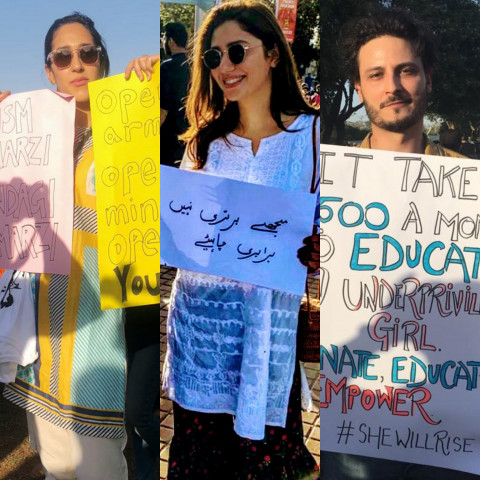 ISM
ARZI
NDAGI
ARZI
ope
arm
ope
min
ope
You
مجھے برتری نہیں
برابری چاہیئے
IT TAKE
500 A MO
O EDUCAT
UNDERPRIVIL
GIRL.
NATE, EDUCAT
EMPOWER.
#SHEWILLRISE